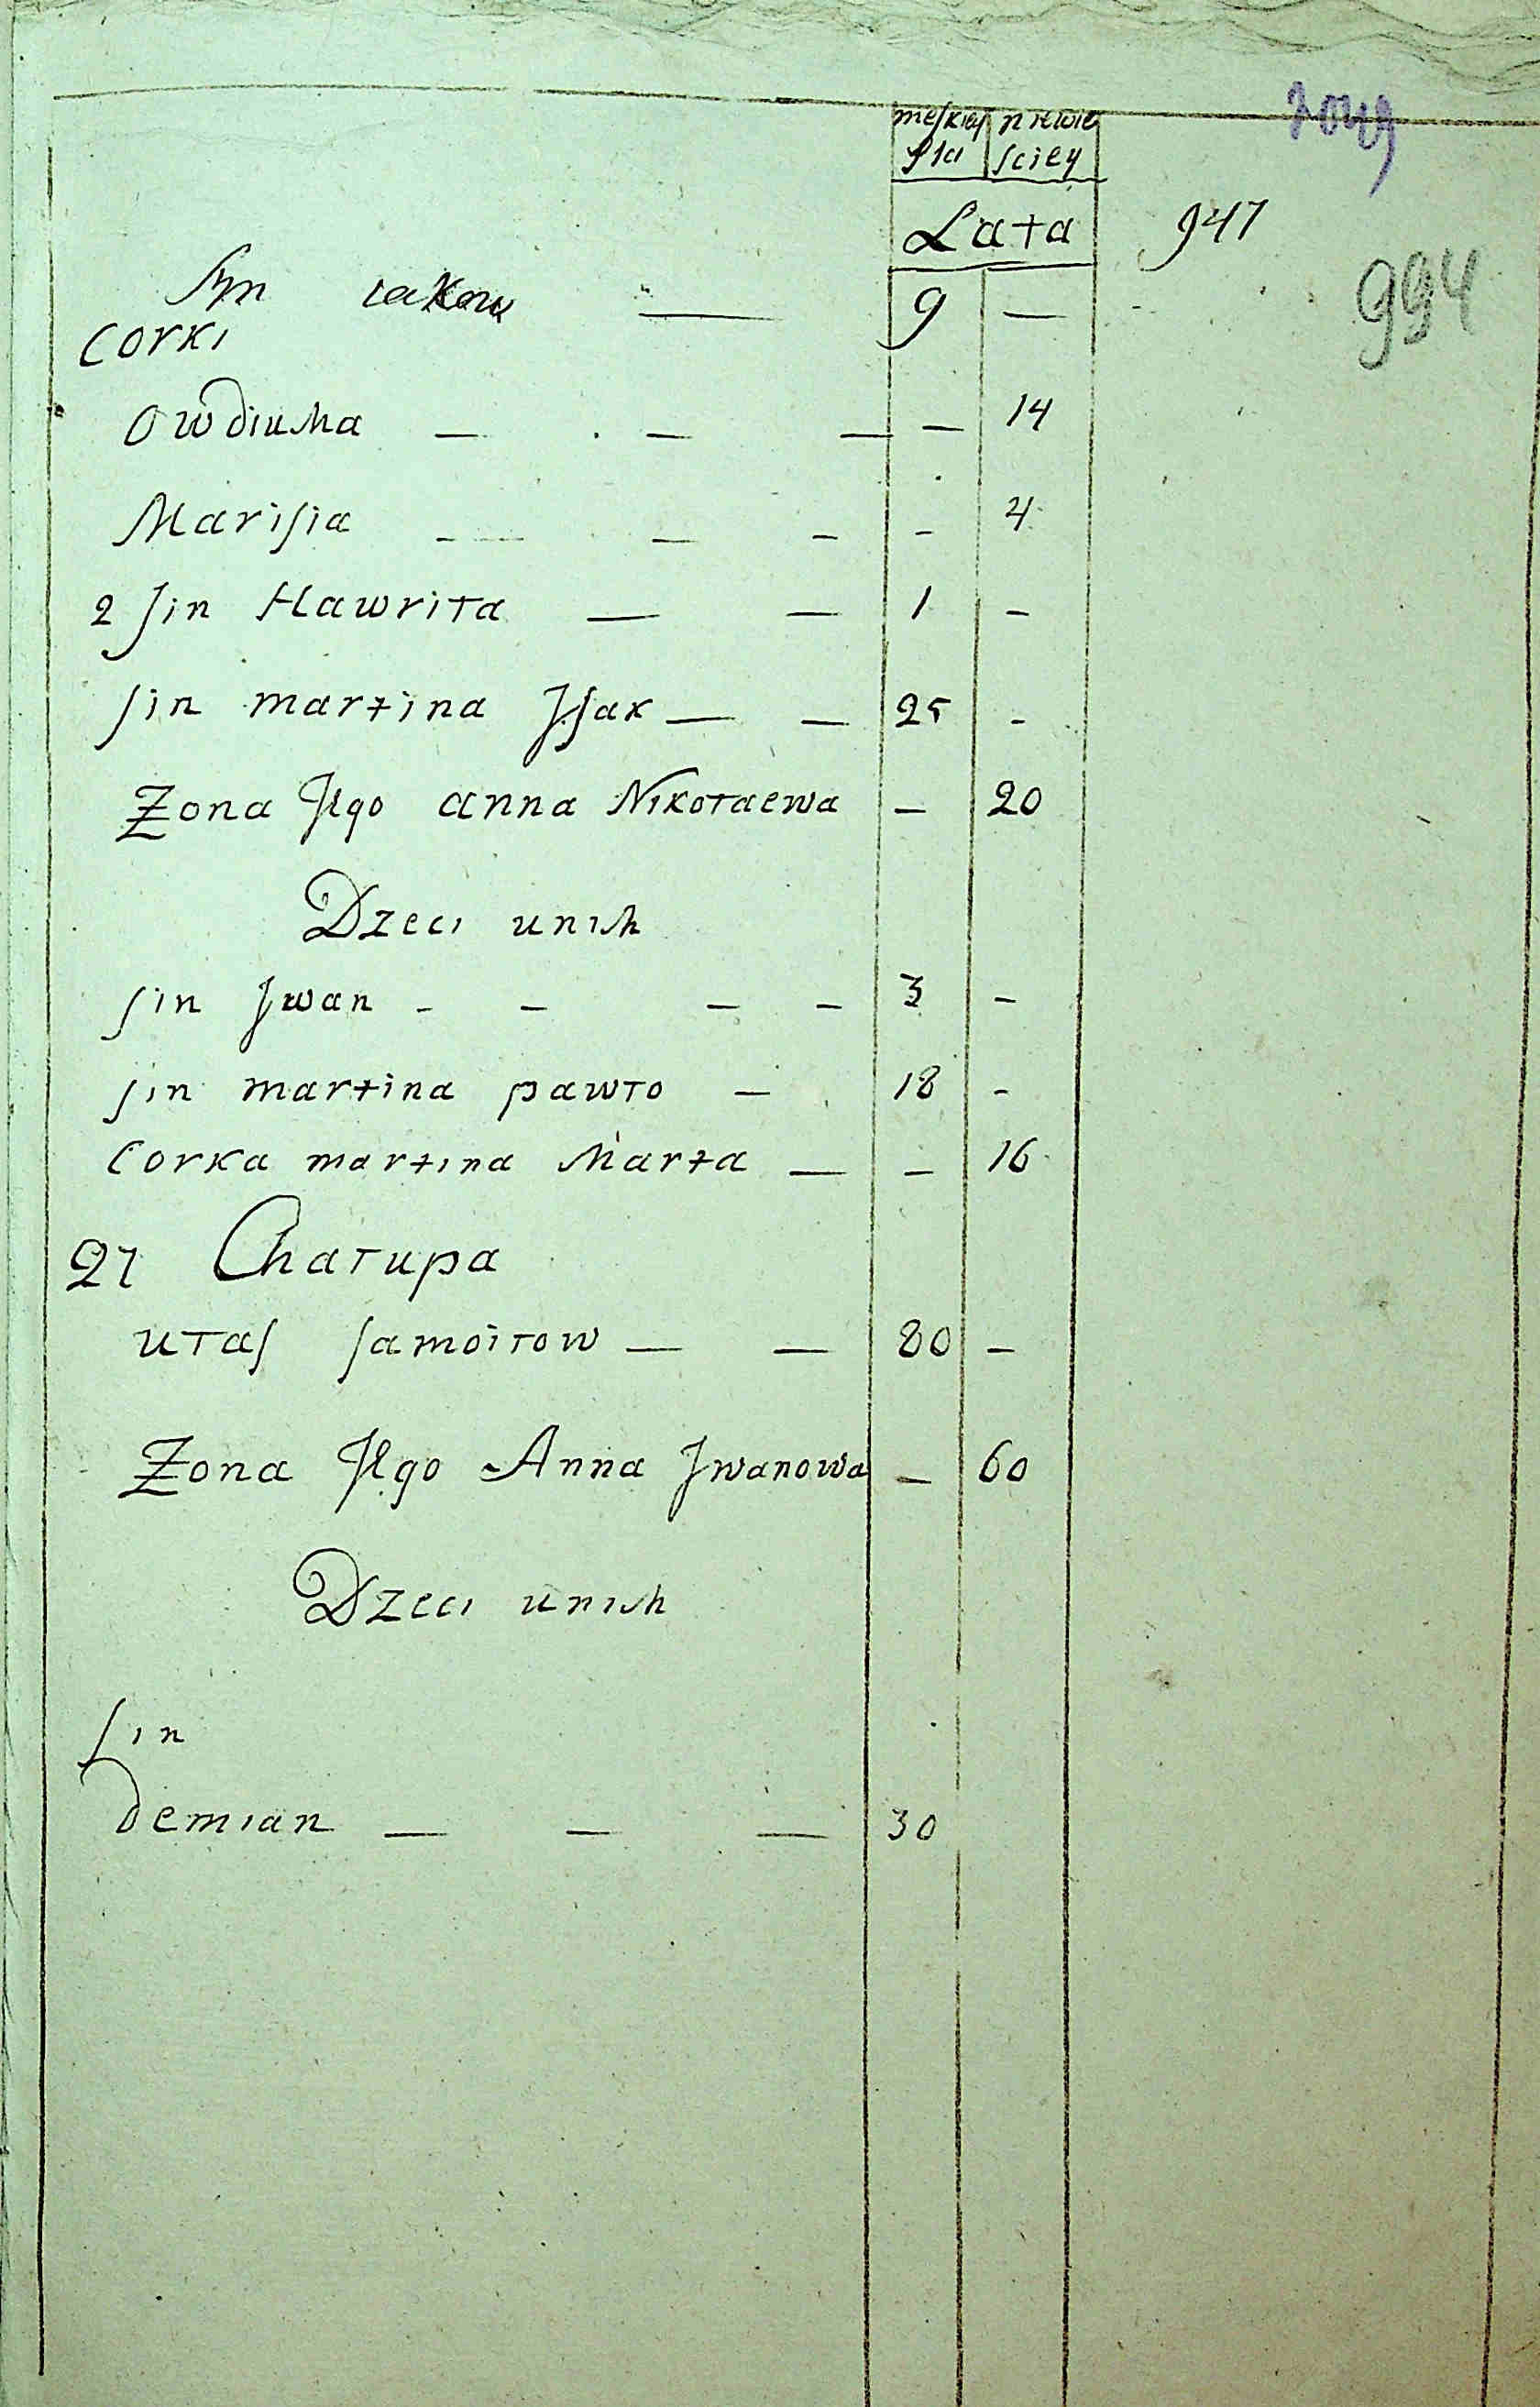 meſkiej niewie
płci ſciey
Lata 947
994
Syn iakow — 9 —
Corki
Owdiuha — — — — 14
Mariſia — — — — 4
2 ſin Hawriła — — 1 —
ſin martina Jſak — — 25 —
Żona Jego anna Nikołaewa — 20
Dzeci unich
ſin Jwan — — — — 3 —
ſin martina pawło — 18 —
Corka martina Marta — — 16
27 Chałupa
ułaſ ſamoiłow — — 80 —
Żona Jego Anna Jwanowa — 60
Dzeci unich
ſin
demian — — — 30